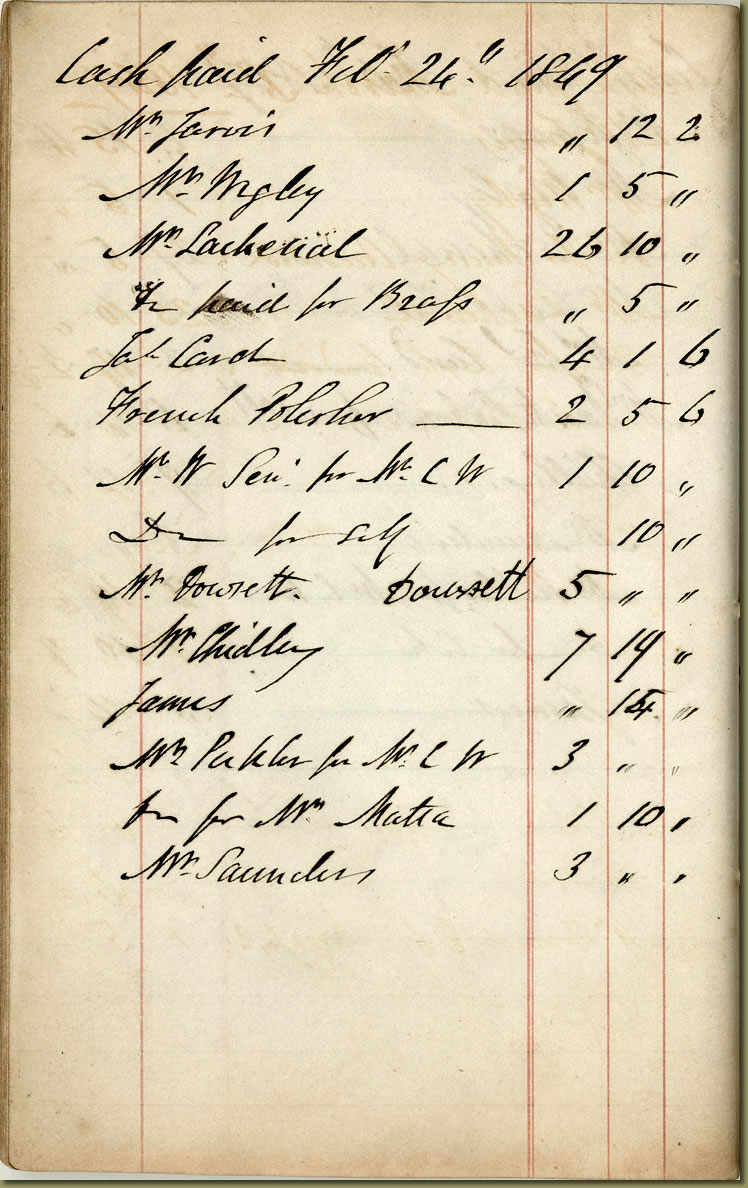 Cash paid Feb 24" 1869
Mr Jarvis " 12 2
Mr Wrgley 1 5 "
Mr Lachenal 26 10 "
Do paid for Brass " 5 "
Job Card 4 1 6
French Polisher — 2 5 6
Mr W Sen. for Mr C W 1 10 "
Do for self 10 "
Mr Dowsett. Dowsett 5 " "
Mr Chidley 7 19 "
James " "
Mr for Mr C W 3 " "
Do for Mr Matta 1 10 "
Mr Saunders 3 " "